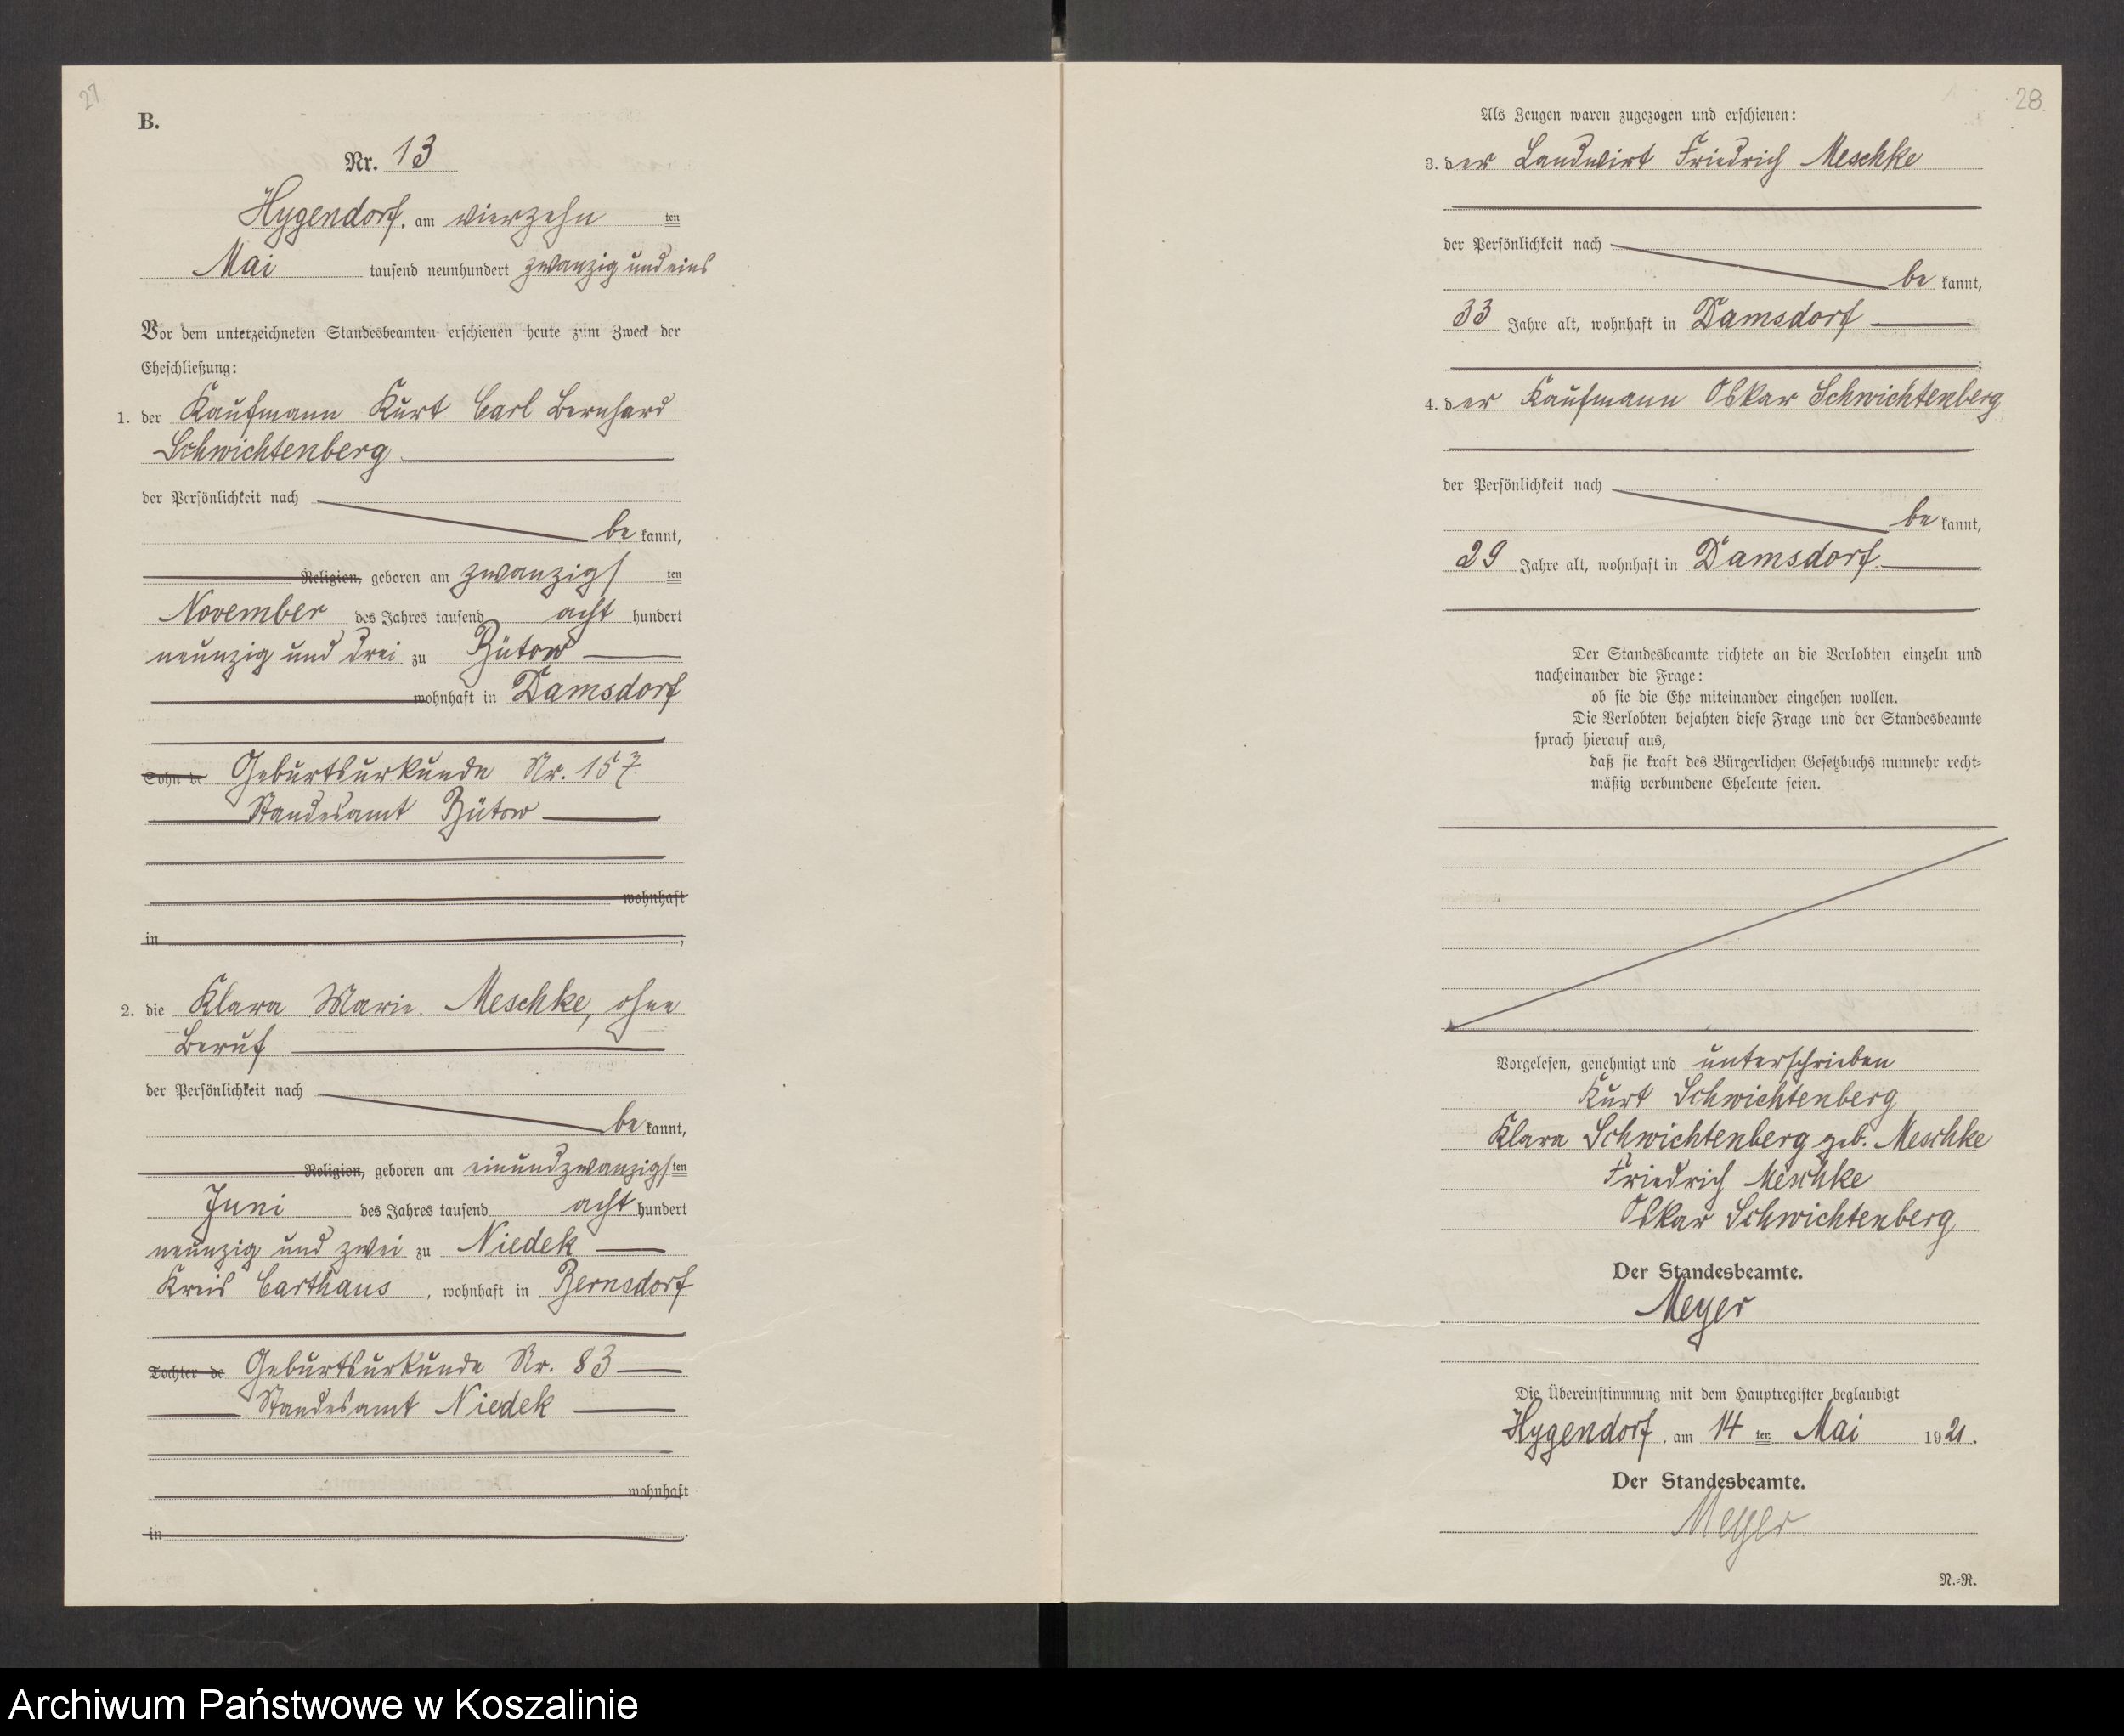 27.
B.
Nr. 13
Hygendorf, am vierzehn ten
Mai tausend neunhundert zwanzig und eins
Vor dem unterzeichneten Standesbeamten erschienen heute zum Zweck der
Eheschließung:
1. der Kaufmann Kurt Carl Bernhard
Schwichtenberg
der Persönlichkeit nach
be kannt,
Religion, geboren am zwanzigs ten
November des Jahres tausend acht hundert
neunzig und drei zu Bütow
wohnhaft in Damsdorf
Sohn de Geburtsurkunde Nr. 157
Standesamt Bütow
wohnhaft
in ;
2. die Klara Marie Meschke, ohne
Beruf
der Persönlichkeit nach
be kannt,
Religion, geboren am einundzwanzigs ten
Juni des Jahres tausend acht hundert
neunzig und zwei zu Niedek
Kreis Carthaus, wohnhaft in Bernsdorf
Tochter de Geburtsurkunde Nr. 83
Standesamt Niedek
wohnhaft
in .
28.
Als Zeugen waren zugezogen und erschienen:
3. der Landwirt Friedrich Meschke
der Persönlichkeit nach
be kannt,
33 Jahre alt, wohnhaft in Damsdorf
;
4. der Kaufmann Oskar Schwichtenberg
der Persönlichkeit nach
be kannt,
29 Jahre alt, wohnhaft in Damsdorf.
Der Standesbeamte richtete an die Verlobten einzeln und
nacheinander die Frage:
ob sie die Ehe miteinander eingehen wollen.
Die Verlobten bejahten diese Frage und der Standesbeamte
sprach hierauf aus,
daß sie kraft des Bürgerlichen Gesetzbuchs nunmehr recht-
mäßig verbundene Eheleute seien.
Vorgelesen, genehmigt und unterschrieben
Kurt Schwichtenberg
Klara Schwichtenberg geb. Meschke
Friedrich Meschke
Oskar Schwichtenberg
Der Standesbeamte.
Meyer
Die Übereinstimmung mit dem Hauptregister beglaubigt
Hygendorf, am 14 ten Mai 1921.
Der Standesbeamte.
Meyer
N.-R.
Archiwum Państwowe w Koszalinie